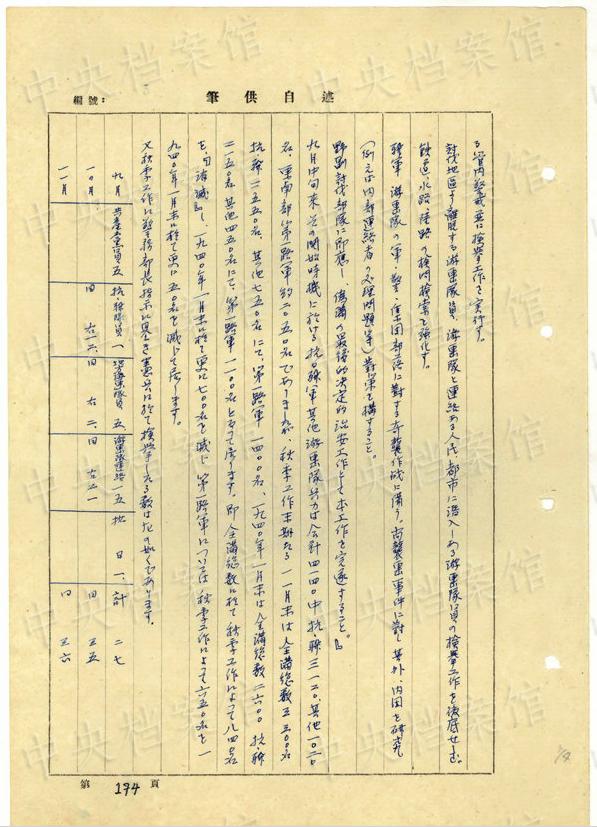 述自供筆
編號：
る管内警戒並に検挙工作を実行す。
討伐地区より離脱する游撃隊員、游撃隊と連絡ある人民、都市に潜入しある游撃隊員の検挙工作を徹底せしむ。
鉄道水路陸路の検問検索を強化す。
聯軍、游撃隊の軍・警・集団部落に対する奇襲作戦に備う。尚襲撃事件に対し其外、内因を研究
（例えば内部連絡者の処理問題等）対策を構ずること。
野副討伐部隊に即応し、偽満の最後的決定的治安工作として本工作を完遂すること。』
九月中旬末、その開始時機に於ける抗日聯軍其他游撃隊兵力は合計四一四〇中抗・聯三一二〇、其他一〇二〇
名、東南部の第一路軍約二〇五〇名でありましたが、秋季工作末期たる一一月末は全満総数三三〇〇名
抗聯二五五〇名、其他七五〇名にて、第一路軍一四〇〇名、一九四〇年一月末は全満総数二六〇〇抗聯
二一五〇名其他四五〇名にて、第一路軍一一〇〇名となって居ります。即全満総数に於て秋季工作によって八四〇名
を、『消滅』し、一九四〇年一月末に於て更に七〇〇名を減じ、第一路軍については秋季工作によって六五〇名を一
九四〇年一月末に於て更に三〇〇名を減じて居ります。
又秋季工作に警務部長指示に基き憲兵に於て検挙したる数は左の如くであります。
九月 共産党員五 抗・聯隊員一 地方游撃隊員五 游撃隊連絡一五 抗日一、計二七
一〇月 同 右一二、同 右二、同 右二一 同 三五
一一月 同 三六
第 174 頁